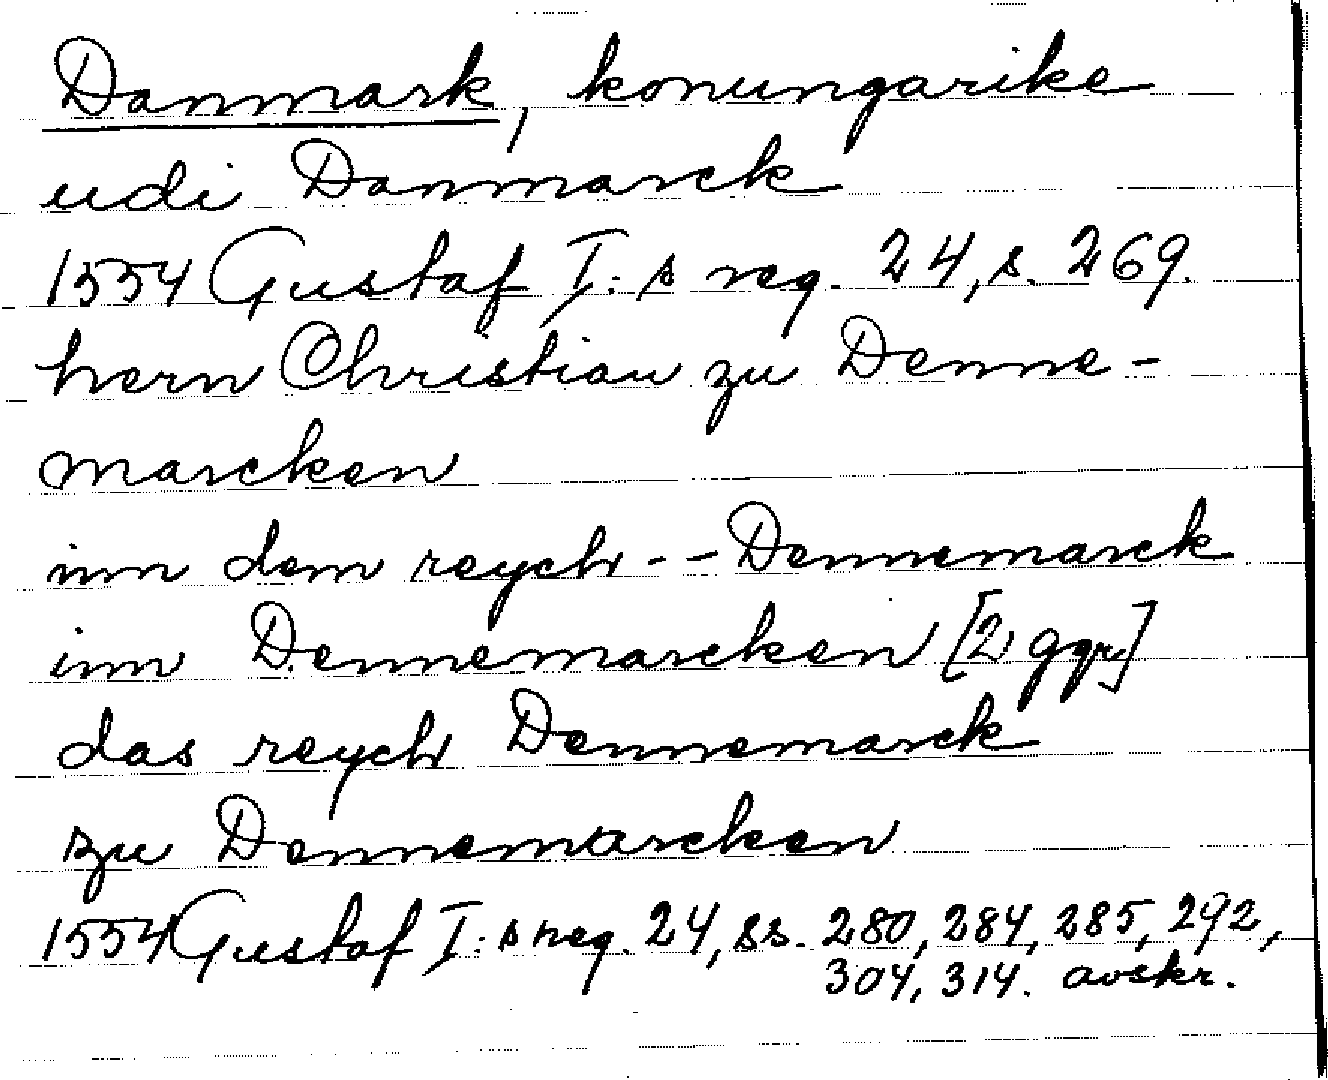 Danmark, konungarike
udi Danmarck
1554 Gustaf I:s reg. 24, s. 269.
hern Christian zu Denne-
marcken
inn dem reych -- Dennemarck
inn Dennemarcken [2 ggr]
das reych Dennemarck
zu Dennemarcken
1554 Gustaf I:s reg. 24, ss. 280, 284, 285, 292,
304, 314. avskr.